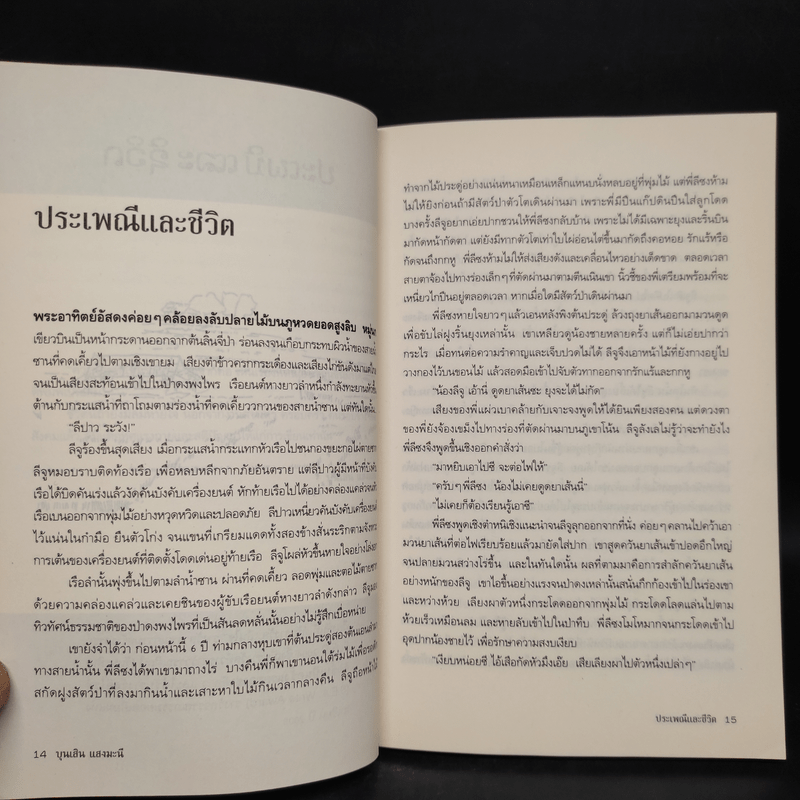 ประเพณีและชีวิต
พระอาทิตย์อัสดงค่อยๆคล้อยลงลับปลายไม้บนภูหวดยอดสูงลิบ
เขียวบินเป็นหน้ากระดานออกจากต้นลิ้นจี่ป่า ร่อนลงจนเกือบกระทบผิวน้ำของสาย
ซานที่คดเคี้ยวไปตามเชิงเขายม เสียงตำข้าวครกกระเดื่องและเสียงไก่ขันดังมา
จนเป็นเสียงสะท้อนเข้าไปในป่าดงพงไพร เรือยนต์หางยาวลำหนึ่งกำลังทะยาน
ต้านกับกระแสน้ำที่ถาโถมตามร่องน้ำที่คดเคี้ยววกวนของสายน้ำซาน แต่ทันใดนั้น
“ลีปาว ระวัง!”
ลีจูร้องขึ้นสุดเสียง เมื่อกระแสน้ำกระแทกหัวเรือไปชนกองขยะกอไผ่
ลีจูหมอบราบติดท้องเรือ เพื่อหลบหลีกจากภัยอันตราย แต่ลีปาวผู้มีหน้าที่บังคับ
เรือได้บิดคันเร่งแล้วงัดคันบังคับเครื่องยนต์ หักท้ายเรือไปได้อย่างคล่องแคล่ว
เรือเบนออกจากพุ่มไม้อย่างหวุดหวิดและปลอดภัย ลีปาวเหนี่ยวคันบังคับเครื่องยนต์
ไว้แน่นในกำมือ ยืนตัวโก่ง จนแขนที่เกรียมแดดทั้งสองข้างสั่นระริกตาม
การเต้นของเครื่องยนต์ที่ติดตั้งโดดเด่นอยู่ท้ายเรือ ลีจูโผล่หัวขึ้นหายใจอย่างโล่งอก
เรือลำนั้นพุ่งขึ้นไปตามลำน้ำซาน ผ่านที่คดเคี้ยว ลอดพุ่มและตอไม้
ด้วยความคล่องแคล่วและเคยชินของผู้ขับเรือยนต์หางยาวลำดังกล่าว
ทิวทัศน์ธรรมชาติของป่าดงพงไพรที่เป็นสันลดหลั่นนั้นอย่างไม่รู้สึกเบื่อหน่าย
เขายังจำได้ว่า ก่อนหน้านี้ 6 ปี ท่ามกลางหุบเขาที่ต้นประดู่สองต้นเอน
ทางสายน้ำนั้น พี่ลีซงได้พาเขามาถางไร่ บางคืนพี่ก็พาเขานอนใต้ร่มไม้เพื่อ
สกัดฝูงสัตว์ป่าที่ลงมากินน้ำและเสาะหาใบไม้กินเวลากลางคืน ลีจูถือหน้าไม้
14 บุนเสิน แสงมะนี
ทำจากไม้ประดู่อย่างแน่นหนาเหมือนเหล็กแหนบนั่งหลบอยู่ที่พุ่มไม้ แต่พี่ลีซงห้าม
ไม่ให้ยิงก่อนถ้ามีสัตว์ป่าตัวโตเดินผ่านมา เพราะพี่มีปืนแก๊ปดินปืนใส่ลูกโดด
บางครั้งลีจูอยากเอ่ยปากชวนให้พี่ลีซงกลับบ้าน เพราะไม่ได้มีเฉพาะยุงและริ้นบิน
มากัดหน้ากัดตา แต่ยังมีทากตัวโตเท่าใบไผ่อ่อนไต่ขึ้นมากัดถึงคอหอย รักแร้หรือ
กัดจนถึงกกหู พี่ลีซงห้ามไม่ให้ส่งเสียงดังและเคลื่อนไหวอย่างเด็ดขาด ตลอดเวลา
สายตาจ้องไปทางร่องเล็กๆที่ตัดผ่านมาตามตีนเนินเขา นิ้วชี้ของพี่เตรียมพร้อมที่จะ
เหนี่ยวไกปืนอยู่ตลอดเวลา หากเมื่อใดมีสัตว์ป่าเดินผ่านมา
พี่ลีซงหายใจยาวๆแล้วเอนหลังพิงต้นประดู่ ล้วงถุงยาเส้นออกมามวนดูด
เพื่อขับไล่ฝูงริ้นยุงเหล่านั้น เขาเหลียวดูน้องชายหลายครั้ง แต่ก็ไม่เอ่ยปากว่า
กระไร เมื่อทนต่อความรำคาญและเจ็บปวดไม่ได้ ลีจูจึงเอาหน้าไม้ที่ยังกางอยู่ไป
วางกองไว้บนขอนไม้ แล้วสอดมือเข้าไปจับตัวทากออกจากรักแร้และกกหู
“น้องลีจู เอ้านี่ ดูดยาเส้นซะ ยุงจะได้ไม่กัด”
เสียงของพี่แผ่วเบาคล้ายกับเจาะจงพูดให้ได้ยินเพียงสองคน แต่ดวงตา
ของพี่ยังจ้องเขม็งไปทางร่องที่ตัดผ่านมาบนภูเขาโน้น ลีจูลังเลไม่รู้ว่าจะทำยังไง
พี่ลีซงจึงพูดขึ้นเชิงออกคำสั่งว่า
“มาหยิบเอาไปซี จะต่อไฟให้”
“ครับๆพี่ลีซง น้องไม่เคยดูดยาเส้นนี่”
“ไม่เคยก็ต้องเรียนรู้เอาซี”
พี่ลีซงพูดเชิงตำหนิเชิงแนะนำจนลีจูลุกออกจากที่นั่ง ค่อยๆคลานไปคว้าเอา
มวนยาเส้นที่ต่อไฟเรียบร้อยแล้วมายัดใส่ปาก เขาสูดควันยาเส้นเข้าปอดอึกใหญ่
จนปลายมวนสว่างโร่ขึ้น และในทันใดนั้น ผลที่ตามมาคือการสำลักควันยาเส้น
อย่างหนักของลีจู เขาไอขึ้นอย่างแรงจนป่าดงเหล่านั้นสนั่นกึกก้องเข้าไปในร่องเขา
และหว่างห้วย เลียงผาตัวหนึ่งกระโดดออกจากพุ่มไม้ กระโดดโลดแล่นไปตาม
ห้วยเร็วเหมือนลม และหายลับเข้าไปในป่าทึบ พี่ลีซงโมโหมากจนกระโดดเข้าไป
อุดปากน้องชายไว้ เพื่อรักษาความสงบเงียบ
“เงียบหน่อยซี ไอ้เสือกัดหัวมึงเอ๊ย เสียเลียงผาไปตัวหนึ่งเปล่าๆ”
ประเพณีและชีวิต 15